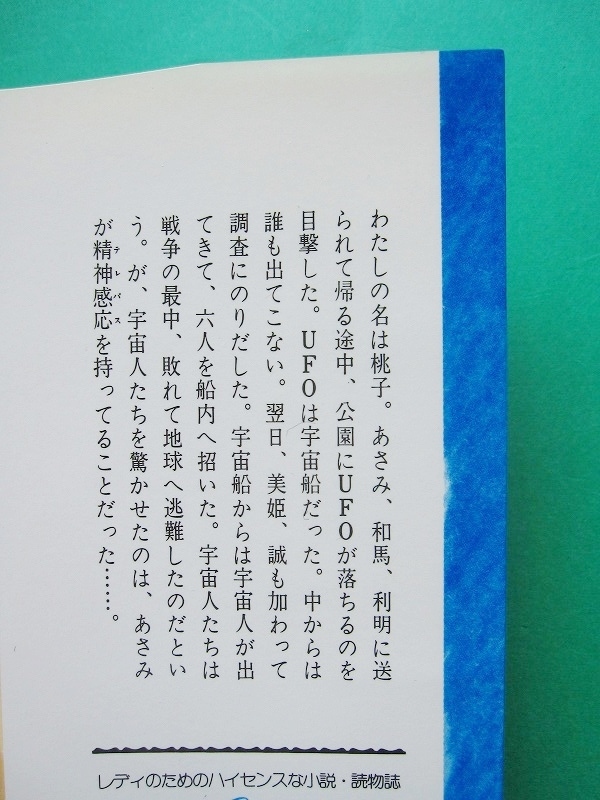 わたしの名は桃子。あさみ、和馬、利明に送
られて帰る途中、公園にUFOが落ちるのを
目撃した。UFOは宇宙船だった。中からは
誰も出てこない。翌日、美姫、誠も加わって
調査にのりだした。宇宙船からは宇宙人が出
てきて、六人を船内へ招いた。宇宙人たちは
戦争の最中、敗れて地球へ逃難したのだとい
う。が、宇宙人たちを驚かせたのは、あさみ
が精神感応テレパスを持ってることだった……。
レディのためのハイセンスな小説・読物誌